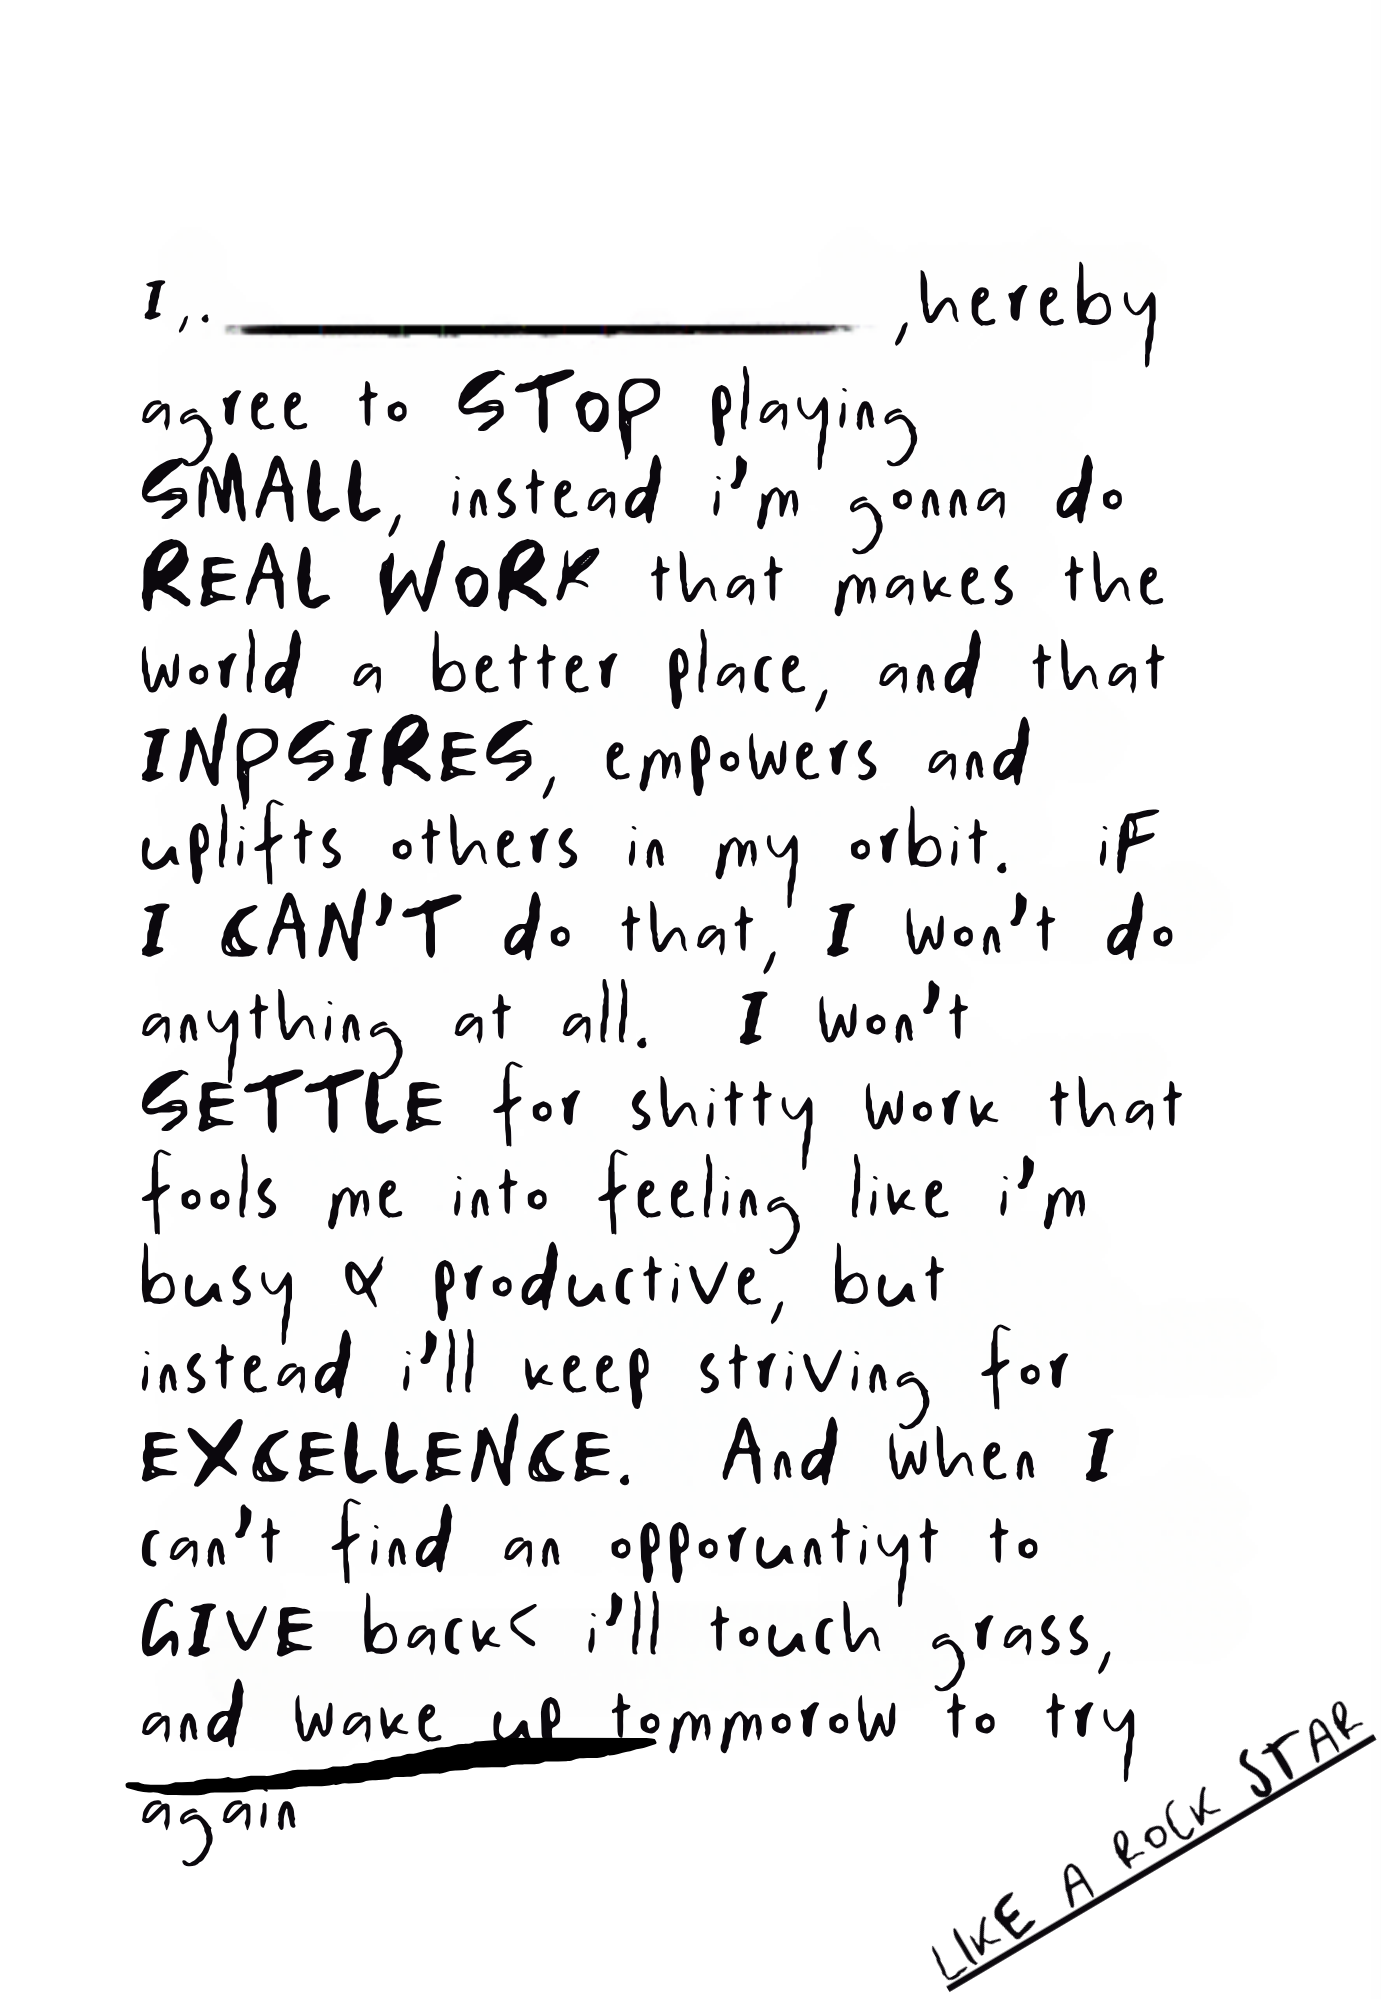 I,. ,hereby
agree to STOP playing
SMALL, instead i'm gonna do
REAL WORK that makes the
world a better place, and that
INPSIRES, empowers and
uplifts others in my orbit. iF
I CAN'T do that, I won't do
anything at all. I won't
SETTLE for shitty work that
fools me into feeling like i'm
busy & productive, but
instead i'll keep striving for
EXCELLENCE. And when I
can't find an opporuntiyt to
GIVE back< i'll touch grass,
and wake up tommorow to try
again
LIKE A ROCK STAR